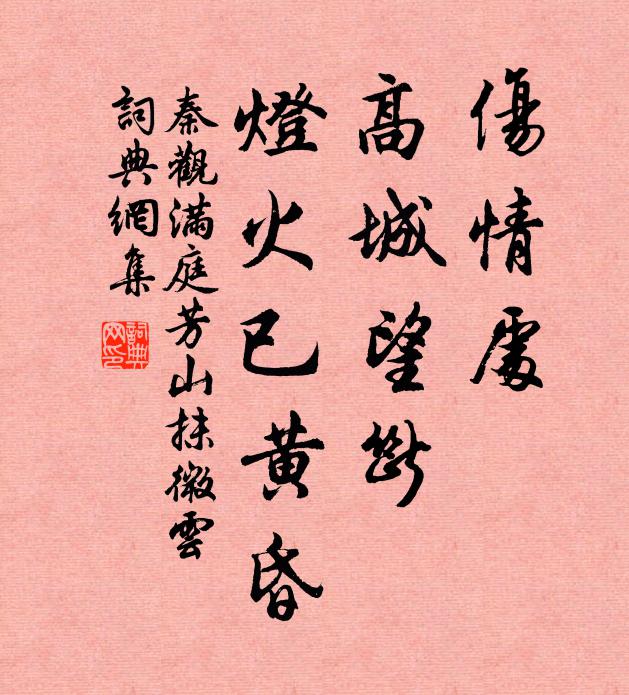 傷情處
高城望斷
燈火已黃昏
秦觀滿庭芳山抹微雲
詞典網集
詞典網印